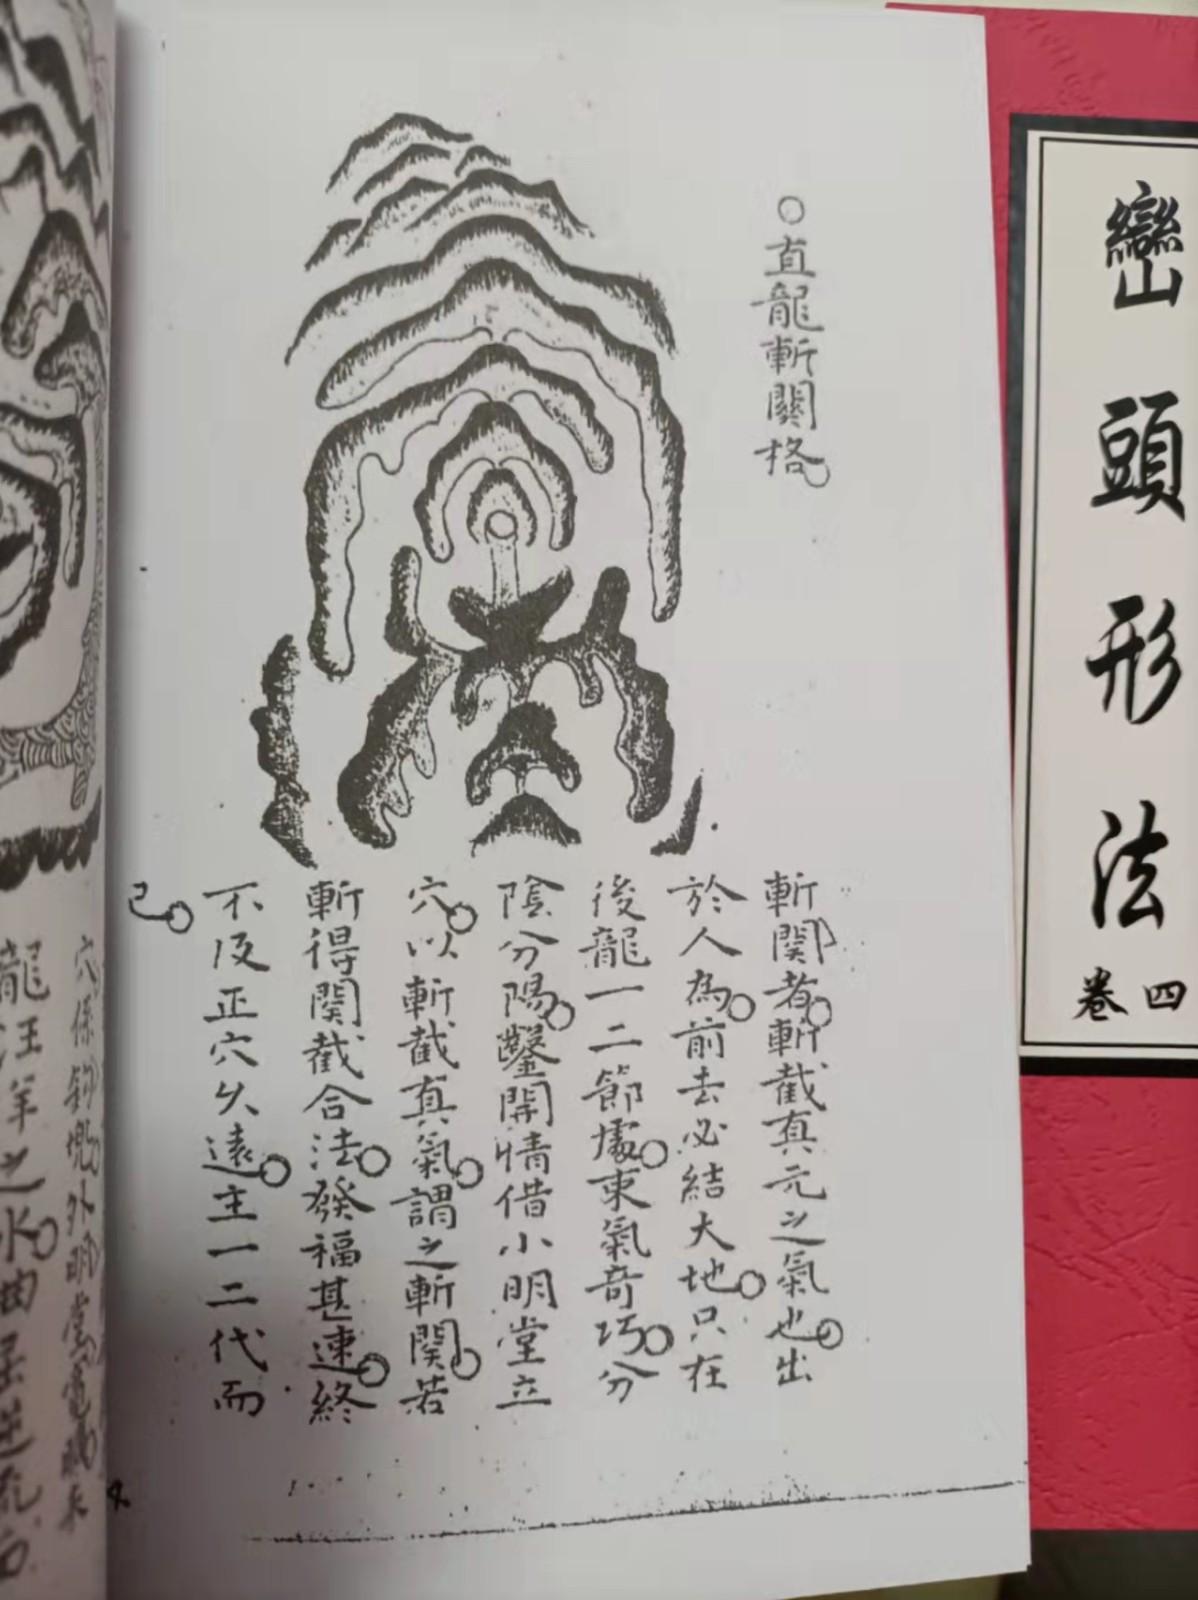 巒頭形法
卷四
○直龍斬關格。
斬関者。斬截真元之氣也。出
於人為。前去必結大地。只在
後龍一二節處。束氣奇巧。分
陰分陽。鑿開情借小明堂立
穴。以斬截真氣。謂之斬関。若
斬得関截合法。發福甚速。終
不及正穴久遠。主一二代而
已。
穴係
外明堂
龍汪羊之水。曲